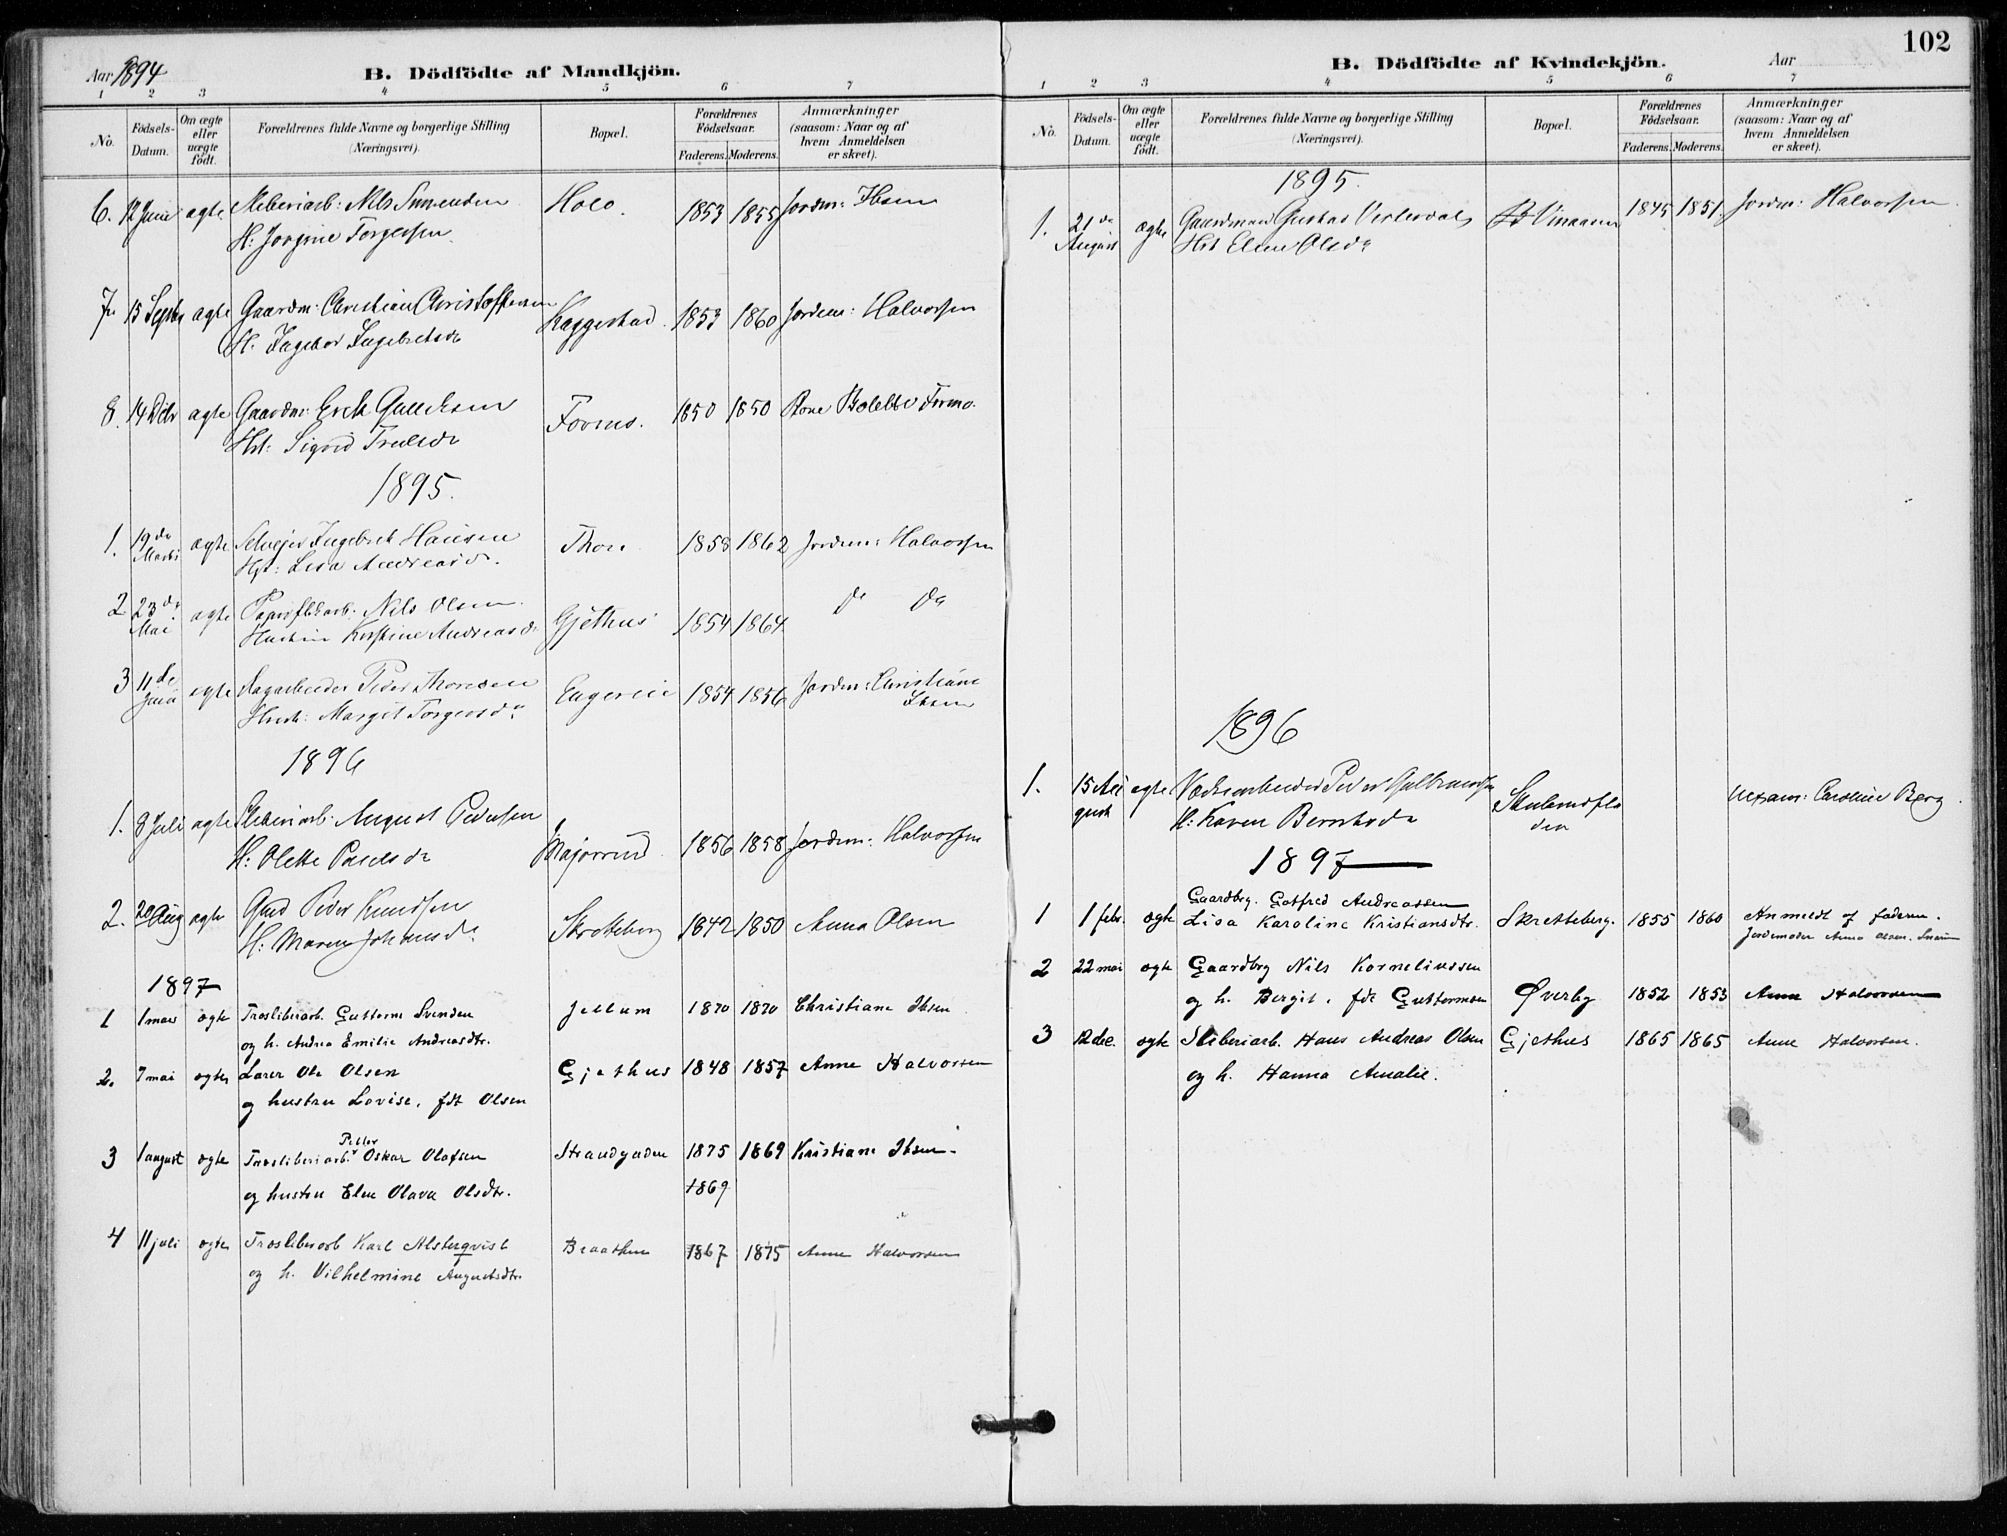 102
Aar 1894
B. Dödfödte af Mandkjön.
1 2 3 4 5 6 7
No.
Födsels-Datum.
Om ægte eller uægte födt.
Forældrenes fulde Navne og borgerlige Stilling
(Næringsvei).
Bopæl.
Forældrenes Födselsaar.
Faderens. Moderens.
Anmærkninger
(saasom: Naar og af
hvem Anmeldelsen
er skeet).
6. 12 Juni ægte Sliberiarb: Nils 1853 1855 Jordm: Ibsen
H: Jorgine Torgersen
7. 15 Septbr ægte Gaardm: Christian Christoffersen Kaggestad 1853 1860 Jordm: Halvorsen
H. Ingebor Ingebretsdr
8. 14 Dcbr ægte Gaardm: Erik Gulliksen Formo. 1850 1850 Kone Formo.
Hst: Sigrid Trulsdr
1895.
1. 19de Marts ægte Selveier Ingebret Hansen Thon 1858 1862 Jordm: Halvorsen
Hst: Lisa Andreasdr.
2 23de Mai ægte Nils Olsen Gjethus 1854 1864 do do
Hustru Kirstine Andreasdr
3 11de Juni ægte Sagarbeider Peder Thoresen Engereie 1854 1856 Jordm: Christiane Ibsen
Hust: Margit Torgersdr
1896
1. 8 Juli ægte Sliberiarb. August Pedersen Majorrud 1856 1858 Jordm: Halvorsen
H: Olette Paulsdr
2. 20 Aug ægte Gmd Peder Knudsen Skretteberg 1842 1850 Anna Olsen
H: Maren Johansdr
1897
1 1 mars ægte Træsliberiarb. Guttorm Svendsen Jellum 1870 1870 Christiane Ibsen
og h. Andrea Emilie Andreasdtr.
2. 7 mai ægte Lærer Ole Olsen Gjethus 1848 1857 Anne Halvorsen
og hustru Lovise, fdt Olsen
3 1 august ægte Træsliberiarb. Petter Oskar Olafsen Strandgaden 1875 1869 Kristiane Ibsen
og hustru Elen Olava Olsdtr. 1869
4 11 juli ægte Træsliberarb Karl Alsterqvist Braathen 1867 1875 Anne Halvorsen
og h. Vilhelmine Augustsdtr.
B. Dödfödte af Kvindekjön.
Aar
1 2 3 4 5 6 7
No.
Födsels-Datum.
Om ægte eller uægte födt.
Forældrenes fulde Navne og borgerlige Stilling
(Næringsvei).
Bopæl.
Forældrenes Födselsaar.
Faderens. Moderens.
Anmærkninger
(saasom: Naar og af
hvem Anmeldelsen
er skeet).
1895.
1. 21de August ægte Gaardmand Gustav 1845 1851 Jordm: Halvorsen
Hst Elen Olsdr
1896
1. 15 August ægte Peder Gulbrandsen 1896 Caroline Berg.
H: Karen Berntsdr
1897
1 1 febr. ægte Gaardbrg. Gotfred Andreassen
Lisa Karoline Kristiansdtr. Skretteberg. 1855 1860 Anmeldt af faderen.
Jordemoder Anna Olsen. Snarum
2 22 mai ægte Gaardbrg Nils Korneliussen
og h. Bergit, fdt Guttormsen Øverby 1852 1853 Anne Halvorsen
3 12 dec. ægte Sliberiarb. Hans Andreas Olsen Gjethus 1865 1865 Anne Halvorsen.
og h. Hanna Amalie.